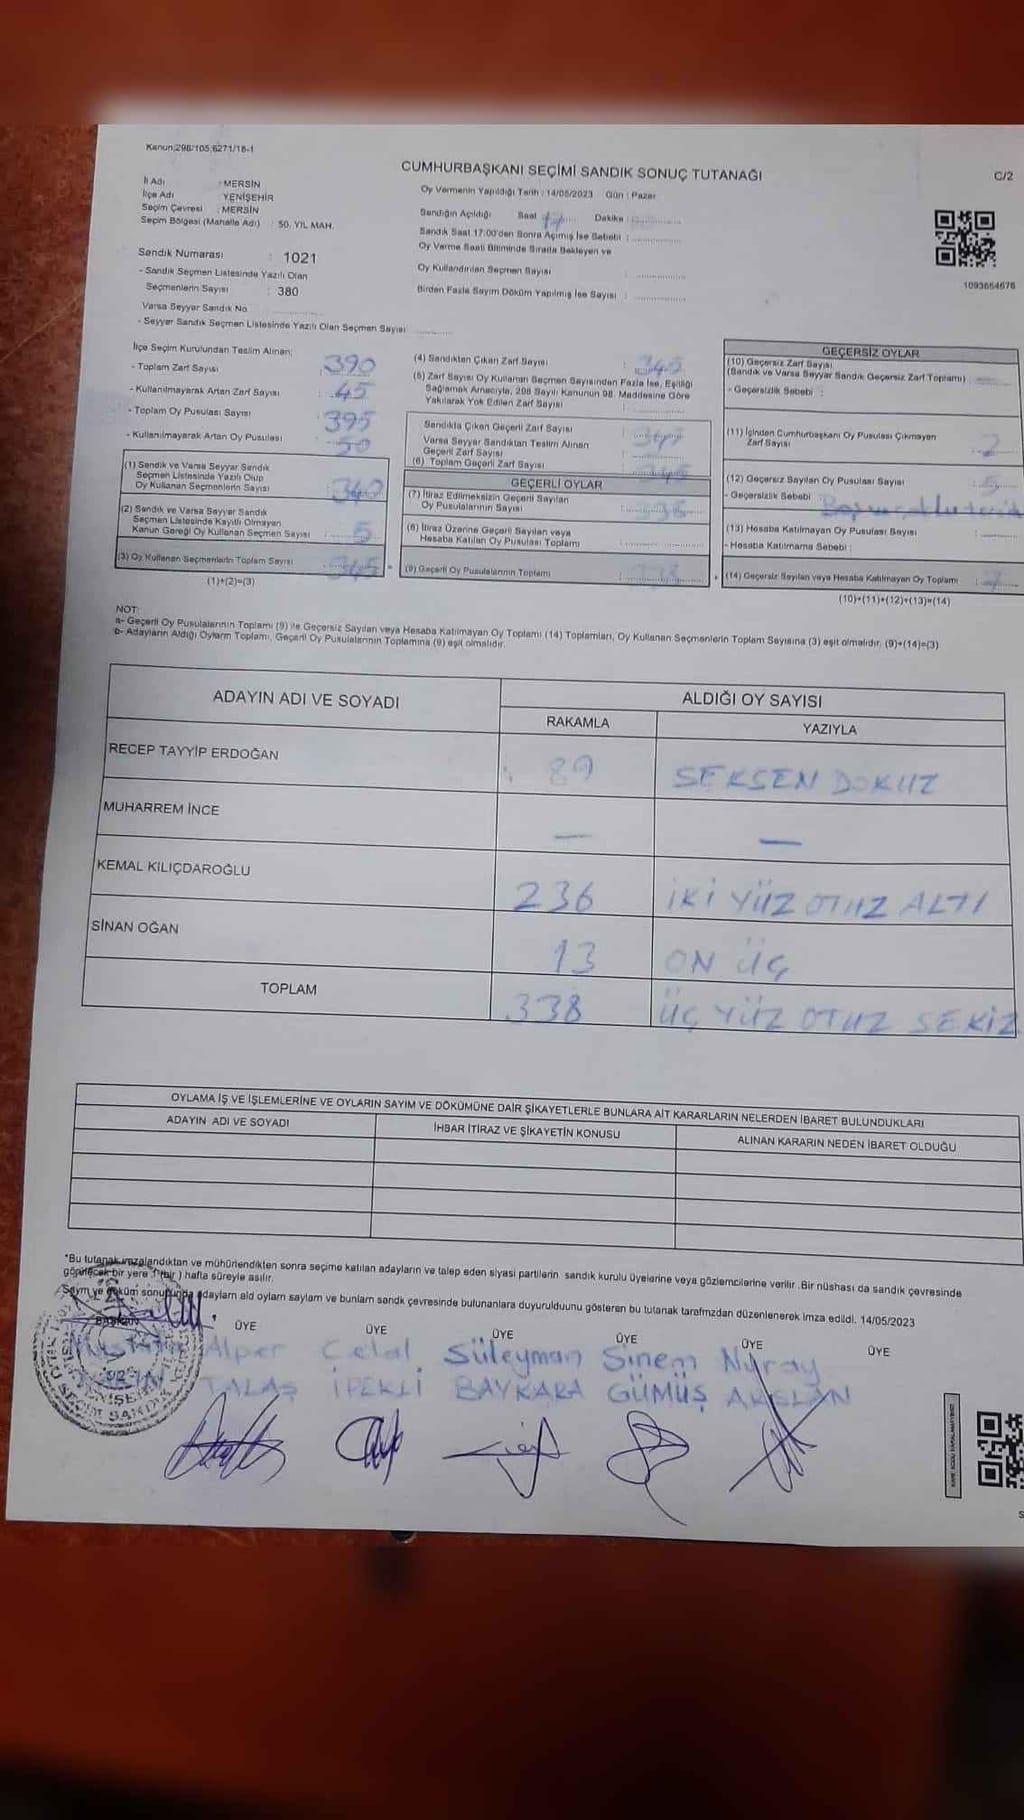 Kanun;298/105,6271/18-1
CUMHURBAŞKANI SEÇİMİ SANDIK SONUÇ TUTANAĞI
C/2
İl Adı : MERSİN
İlçe Adı : YENİŞEHİR
Seçim Çevresi : MERSİN
Seçim Bölgesi (Mahalle Adı) : 50. YIL MAH.
Oy Vermenin Yapıldığı Tarih : 14/05/2023 Gün : Pazar
Sandığın Açıldığı Saat 17 Dakika :
Sandık Saat 17:00'den Sonra Açımış İse Sebebi :
Oy Verme Saati Bitiminde Sırada Bekleyen ve
Oy Kullandırılan Seçmen Sayısı :
Birden Fazla Sayım Döküm Yapılmış İse Sayısı :
1093654676
Sandık Numarası : 1021
- Sandık Seçmen Listesinde Yazılı Olan
Seçmenlerin Sayısı : 380
Varsa Seyyar Sandık No
- Seyyar Sandık Seçmen Listesinde Yazılı Olan Seçmen Sayısı
İlçe Seçim Kurulundan Teslim Alınan;
- Toplam Zarf Sayısı : 390
- Kullanılmayarak Artan Zarf Sayısı : 45
- Toplam Oy Pusulası Sayısı : 395
- Kullanılmayarak Artan Oy Pusulası : 50
(1) Sandık ve Varsa Seyyar Sandık
Seçmen Listesinde Yazılı Olup
Oy Kullanan Seçmenlerin Sayısı : 340
(2) Sandık ve Varsa Seyyar Sandık
Seçmen Listesinde Kayıtlı Olmayan
Kanun Gereği Oy Kullanan Seçmen Sayısı : 5
(3) Oy Kullanan Seçmenlerin Toplam Sayısı : 345
(1)+(2)=(3)
(4) Sandıktan Çıkan Zarf Sayısı : 345
(5) Zarf Sayısı Oy Kullanan Seçmen Sayısından Fazla İse, Eşitliği
Sağlamak Amacıyla, 298 Sayılı Kanunun 98. Maddesine Göre
Yakılarak Yok Edilen Zarf Sayısı :
Sandıkta Çıkan Geçerli Zarf Sayısı :
Varsa Seyyar Sandıktan Teslim Alınan
Geçerli Zarf Sayısı :
(6) Toplam Geçerli Zarf Sayısı : 345
GEÇERLİ OYLAR
(7) İtiraz Edilmeksizin Geçerli Sayılan
Oy Pusulalarının Sayısı :
(8) İtiraz Üzerine Geçerli Sayılan veya
Hesaba Katılan Oy Pusulası Toplamı :
(9) Geçerli Oy Pusulalarının Toplamı : 338
GEÇERSİZ OYLAR
(10) Geçersiz Zarf Sayısı
(Sandık ve Varsa Seyyar Sandık Geçersiz Zarf Toplamı) :
- Geçersizlik Sebebi :
(11) İçinden Cumhurbaşkanı Oy Pusulası Çıkmayan
Zarf Sayısı : 2
(12) Geçersiz Sayılan Oy Pusulası Sayısı : 5
- Geçersizlik Sebebi :
(13) Hesaba Katılmayan Oy Pusulası Sayısı :
- Hesaba Katılmama Sebebi :
(14) Geçersiz Sayılan veya Hesaba Katılmayan Oy Toplamı : 7
(10)+(11)+(12)+(13)=(14)
NOT:
a- Geçerli Oy Pusulalarının Toplamı (9) ile Geçersiz Sayılan veya Hesaba Katılmayan Oy Toplamı (14) Toplamları, Oy Kullanan Seçmenlerin Toplam Sayısına (3) eşit olmalıdır. (9)+(14)=(3)
b- Adayların Aldığı Oyların Toplamı, Geçerli Oy Pusulalarının Toplamına (9) eşit olmalıdır.
ADAYIN ADI VE SOYADI
ALDIĞI OY SAYISI
RAKAMLA YAZIYLA
RECEP TAYYİP ERDOĞAN 89 SEKSEN DOKUZ
MUHARREM İNCE — —
KEMAL KILIÇDAROĞLU 236 İKİ YÜZ OTUZ ALTI
SİNAN OĞAN 13 ON ÜÇ
TOPLAM 338 ÜÇ YÜZ OTUZ SEKİZ
OYLAMA İŞ VE İŞLEMLERİNE VE OYLARIN SAYIM VE DÖKÜMÜNE DAİR ŞİKAYETLERLE BUNLARA AİT KARARLARIN NELERDEN İBARET BULUNDUKLARI
ADAYIN ADI VE SOYADI İHBAR İTİRAZ VE ŞİKAYETİN KONUSU ALINAN KARARIN NEDEN İBARET OLDUĞU
*Bu tutanak imzalandıktan ve mühürlendikten sonra seçime katılan adayların ve talep eden siyasi partilerin sandık kurulu üyelerine veya gözlemcilerine verilir.Bir nüshası da sandık çevresinde
görülecek bir yere 1 (bir) hafta süreyle asılır.
Sayım ve döküm sonucunda adayların ald oyların saylarn ve bunların sandk çevresinde bulunanlara duyurulduunu gösteren bu tutanak tarafmzdan düzenlenerek imza edildi. 14/05/2023
BAŞKAN ÜYE ÜYE ÜYE ÜYE ÜYE ÜYE
Alper Celal Süleyman Sinem Nuray
TALAŞ İPEKLİ BAYKARA GÜMÜŞ